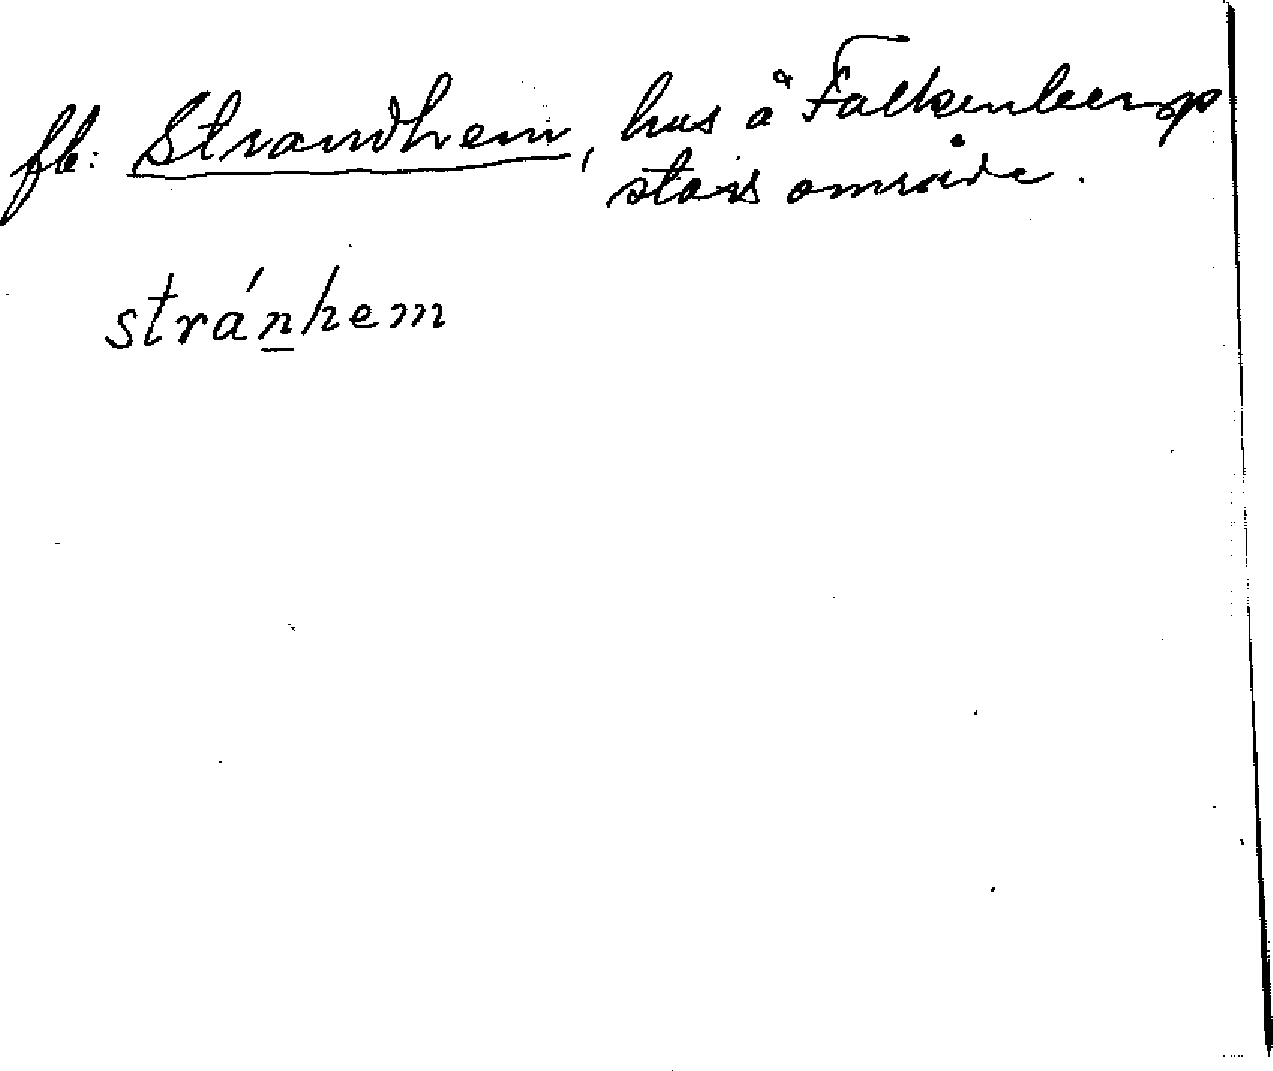 fb: Strandhem, hus å Falkenbergs
stads område.
stránhem